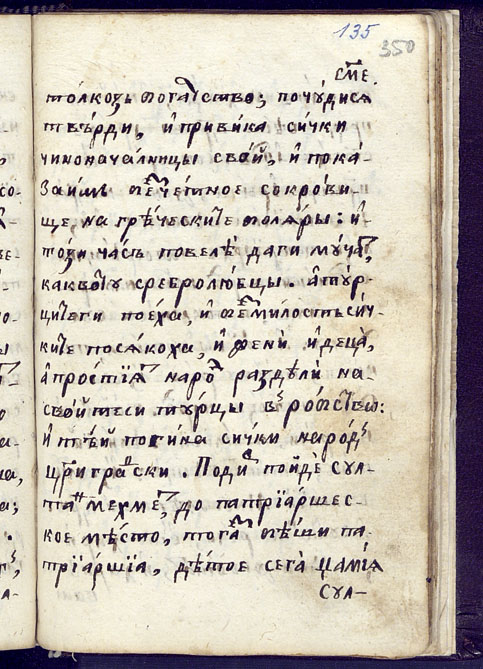 135
350
сме.
толкозь богатство; почꙋдисѧ
твърди, и привика сички
чиноначалницы свой, и пока-
заимъ безчетное сокрови-
ще на греческите болѧры: и
този часъ повеле даги мꙋчатъ,
каквото сребролюбцы. а тꙋр-
ците ги поеха, и без милость сич-
ките посѧкоха, и жени и деца,
а простїѧ народ раздели на
свойтеси тꙋрцы въ робство:
и тъй погина сички народъ
цариградски. Подиръ пойде сꙋл-
тан мехметъ, до патрїаршес-
кое место, тогаз беши па-
трїаршїа, детое сега џамїѧ
сꙋл-